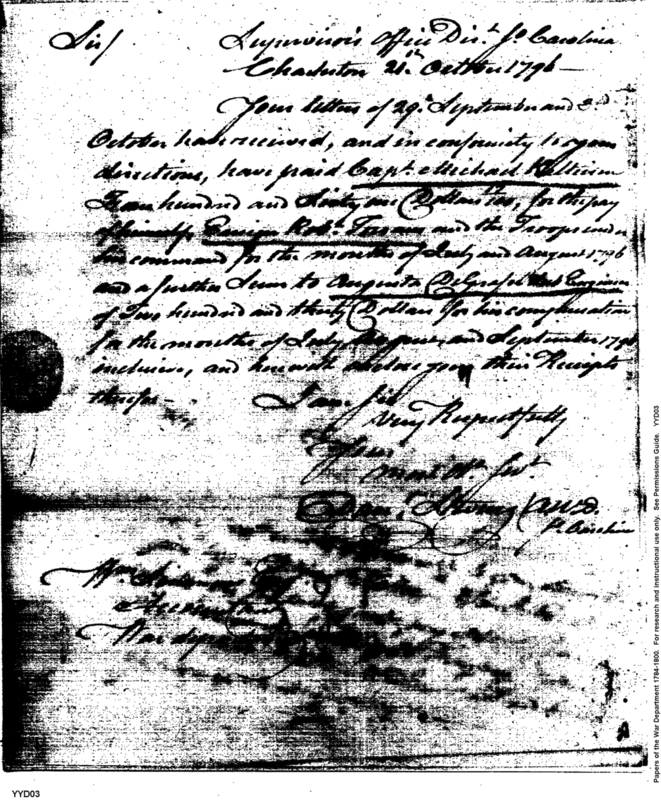 Sir/ Supervisor's Office Dist. So Carolina
Charleston 21st October 1796 —
Your letters of 29th September and 3rd
October have received, and in conformity to your
directions, have paid Capt. Michael
hundred and Sixty one Dollars for the pay
of himself, Ensign Robt. and the Troops under
his command for the months of July and August 1796
and a further Sum to Augusta Engineer
of Two hundred and thirty Dollars for his compensation
for the months of July, August, and September 1796
inclusive, and herewith enclose you their Receipts
therefor —
I am Sir
very Respectfully
Your
most Ob. Servt.
Danl. Stevens
So Carolina
Wm. Simmons Esqr
Accountant
War department
YYD03
Papers of the War Department 1784-1800. For research and instructional use only. See Permissions Guide. YYD03